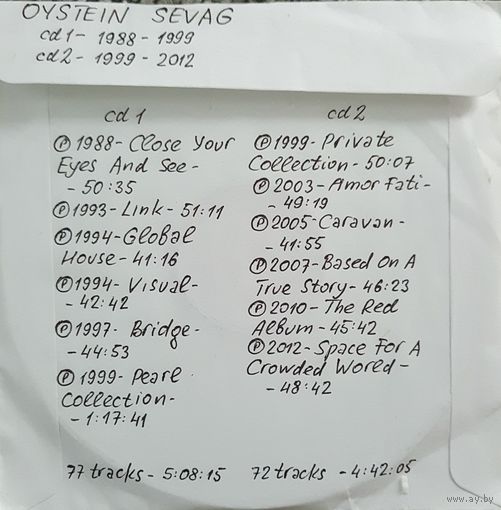 OYSTEIN SEVAG
cd1- 1988 - 1999
cd2- 1999 - 2012
cd 1
Ⓟ1988- Close Your
Eyes And See-
- 50:35
Ⓟ1993- Link- 51:11
Ⓟ1994-Global
House- 41:16
Ⓟ1994- Visual-
- 42:42
Ⓟ1997- Bridge-
- 44:53
Ⓟ1999- Pearl
Collection-
- 1:17:41
77 tracks - 5:08:15
cd 2
Ⓟ1999- Private
Collection- 50:07
Ⓟ2003- Amor Fati-
- 49:19
Ⓟ2005- Caravan-
- 41:55
Ⓟ2007- Based On A
True Story- 46:23
Ⓟ2010- The Red
Album- 45:42
Ⓟ2012- Space For A
Crowded World-
- 48:42
72 tracks - 4:42:05
www.ay.by